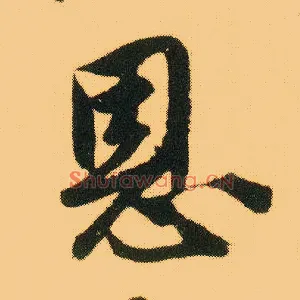 恩
Shufawang.cn